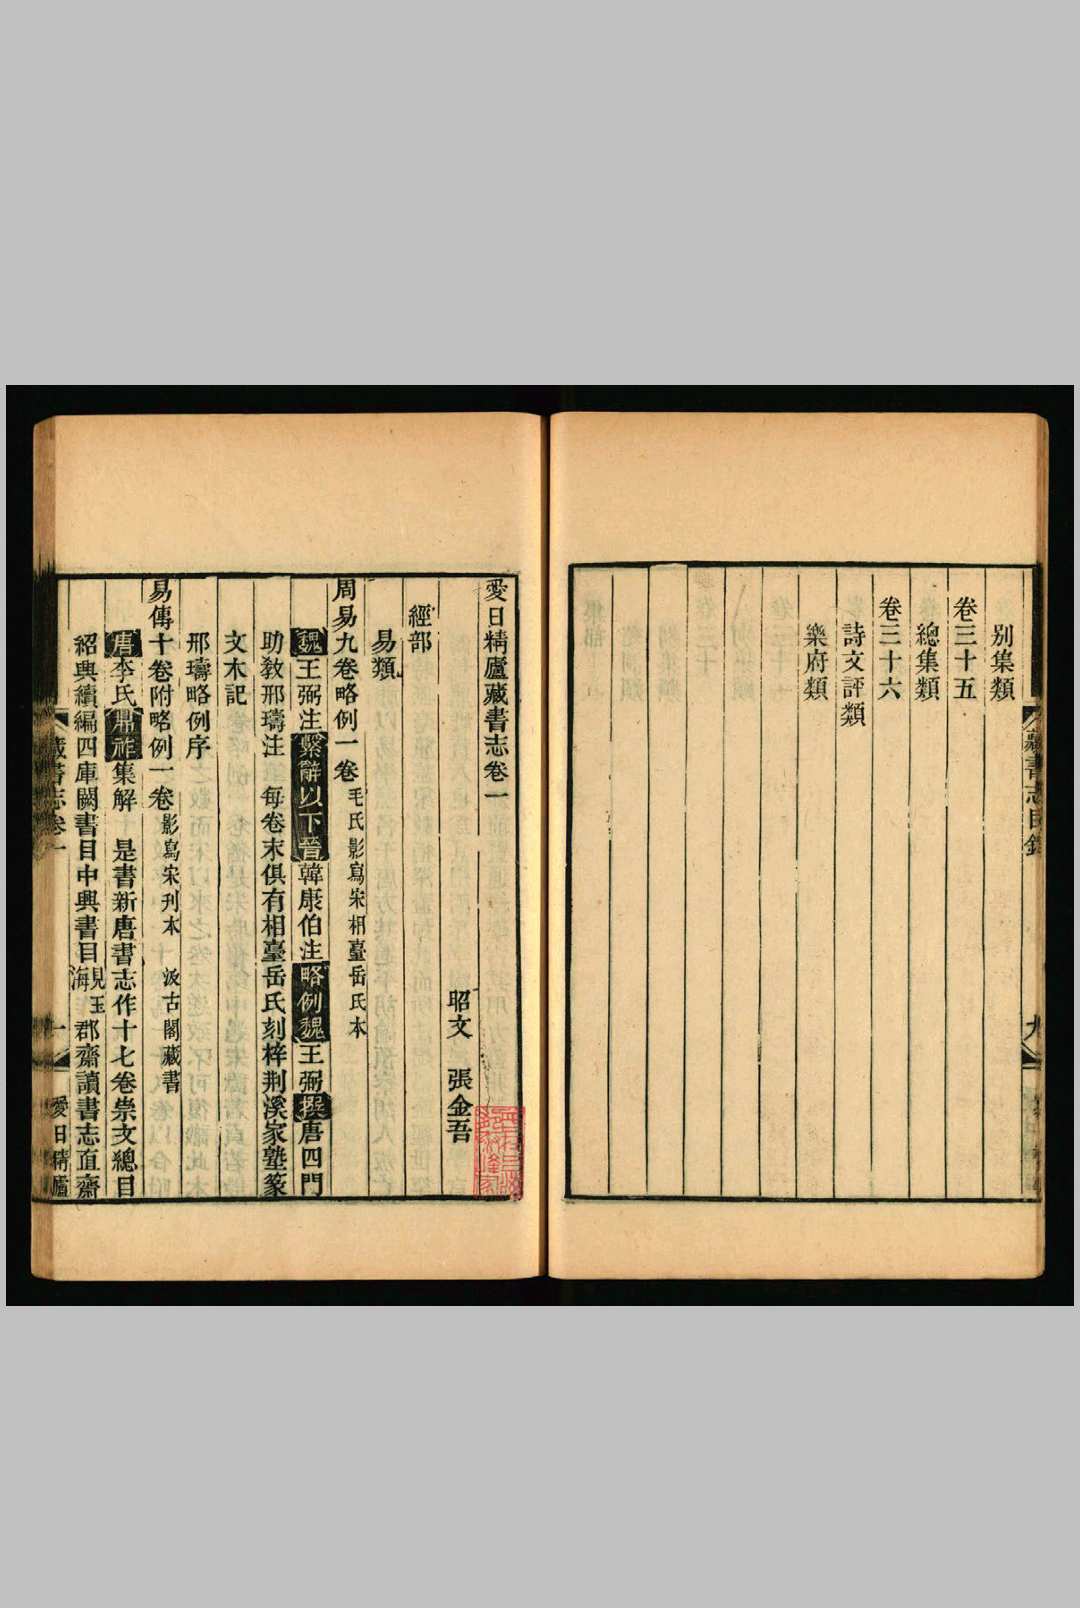 別集類
卷三十五
總集類
卷三十六
詩文評類
樂府類
藏書志目錄
九
愛日精廬藏書志卷一
昭文 張金吾
經部
易類
周易九卷略例一卷 毛氏影寫宋相臺岳氏本
魏王弼注繫辭以下晉韓康伯注略例魏王弼撰唐四門
助敎邢璹注 每卷末俱有相臺岳氏刻梓荆溪家塾篆
文木記
邢璹略例序
易傳十卷附略例一卷 影寫宋刊本 汲古閣藏書
唐李氏鼎祚集解 是書新唐書志作十七卷崇文總目
紹興續編四庫闕書目中興書目見玉海郡齋讀書志直齋
藏書志卷一
一
愛日精廬